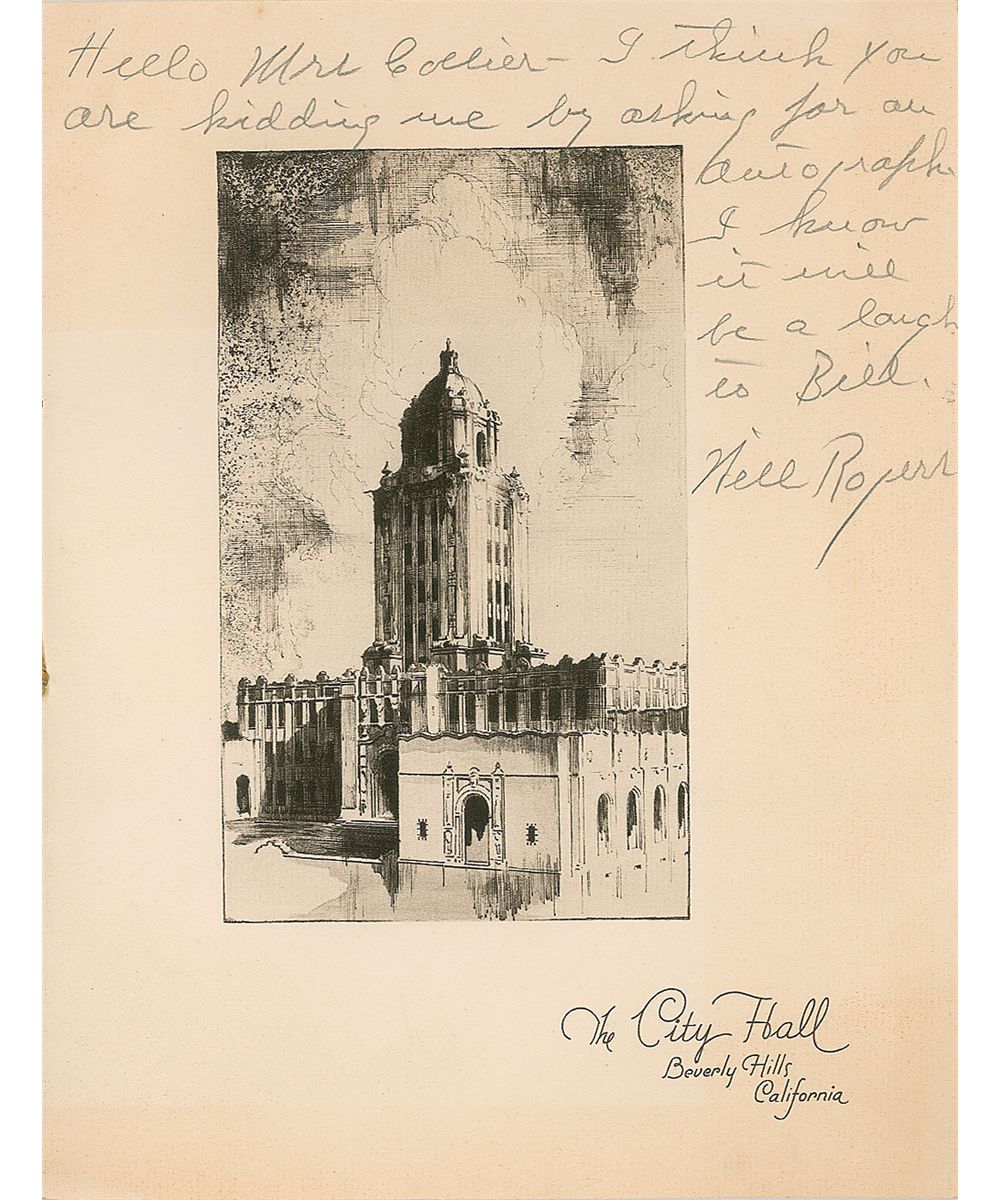 Hello Mrs Collier - I think you
are kidding me by asking for an
autograph.
I know
it will
be a laugh
to Bill.
Will Rogers
The City Hall
Beverly Hills
California